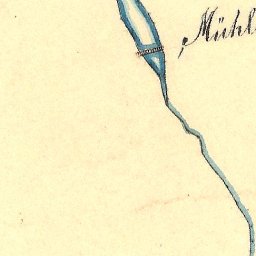 Mühl